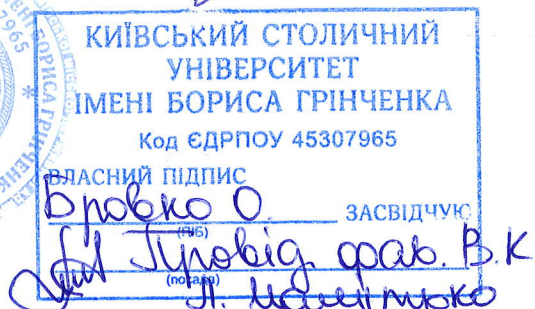 КИЇВСЬКИЙ СТОЛИЧНИЙ
УНІВЕРСИТЕТ
ІМЕНІ БОРИСА ГРІНЧЕНКА
Код ЄДРПОУ 45307965
ВЛАСНИЙ ПІДПИС
Бровко О. ЗАСВІДЧУЮ
(ПІБ)
Провід. фах. В.К
(посада)
Л.